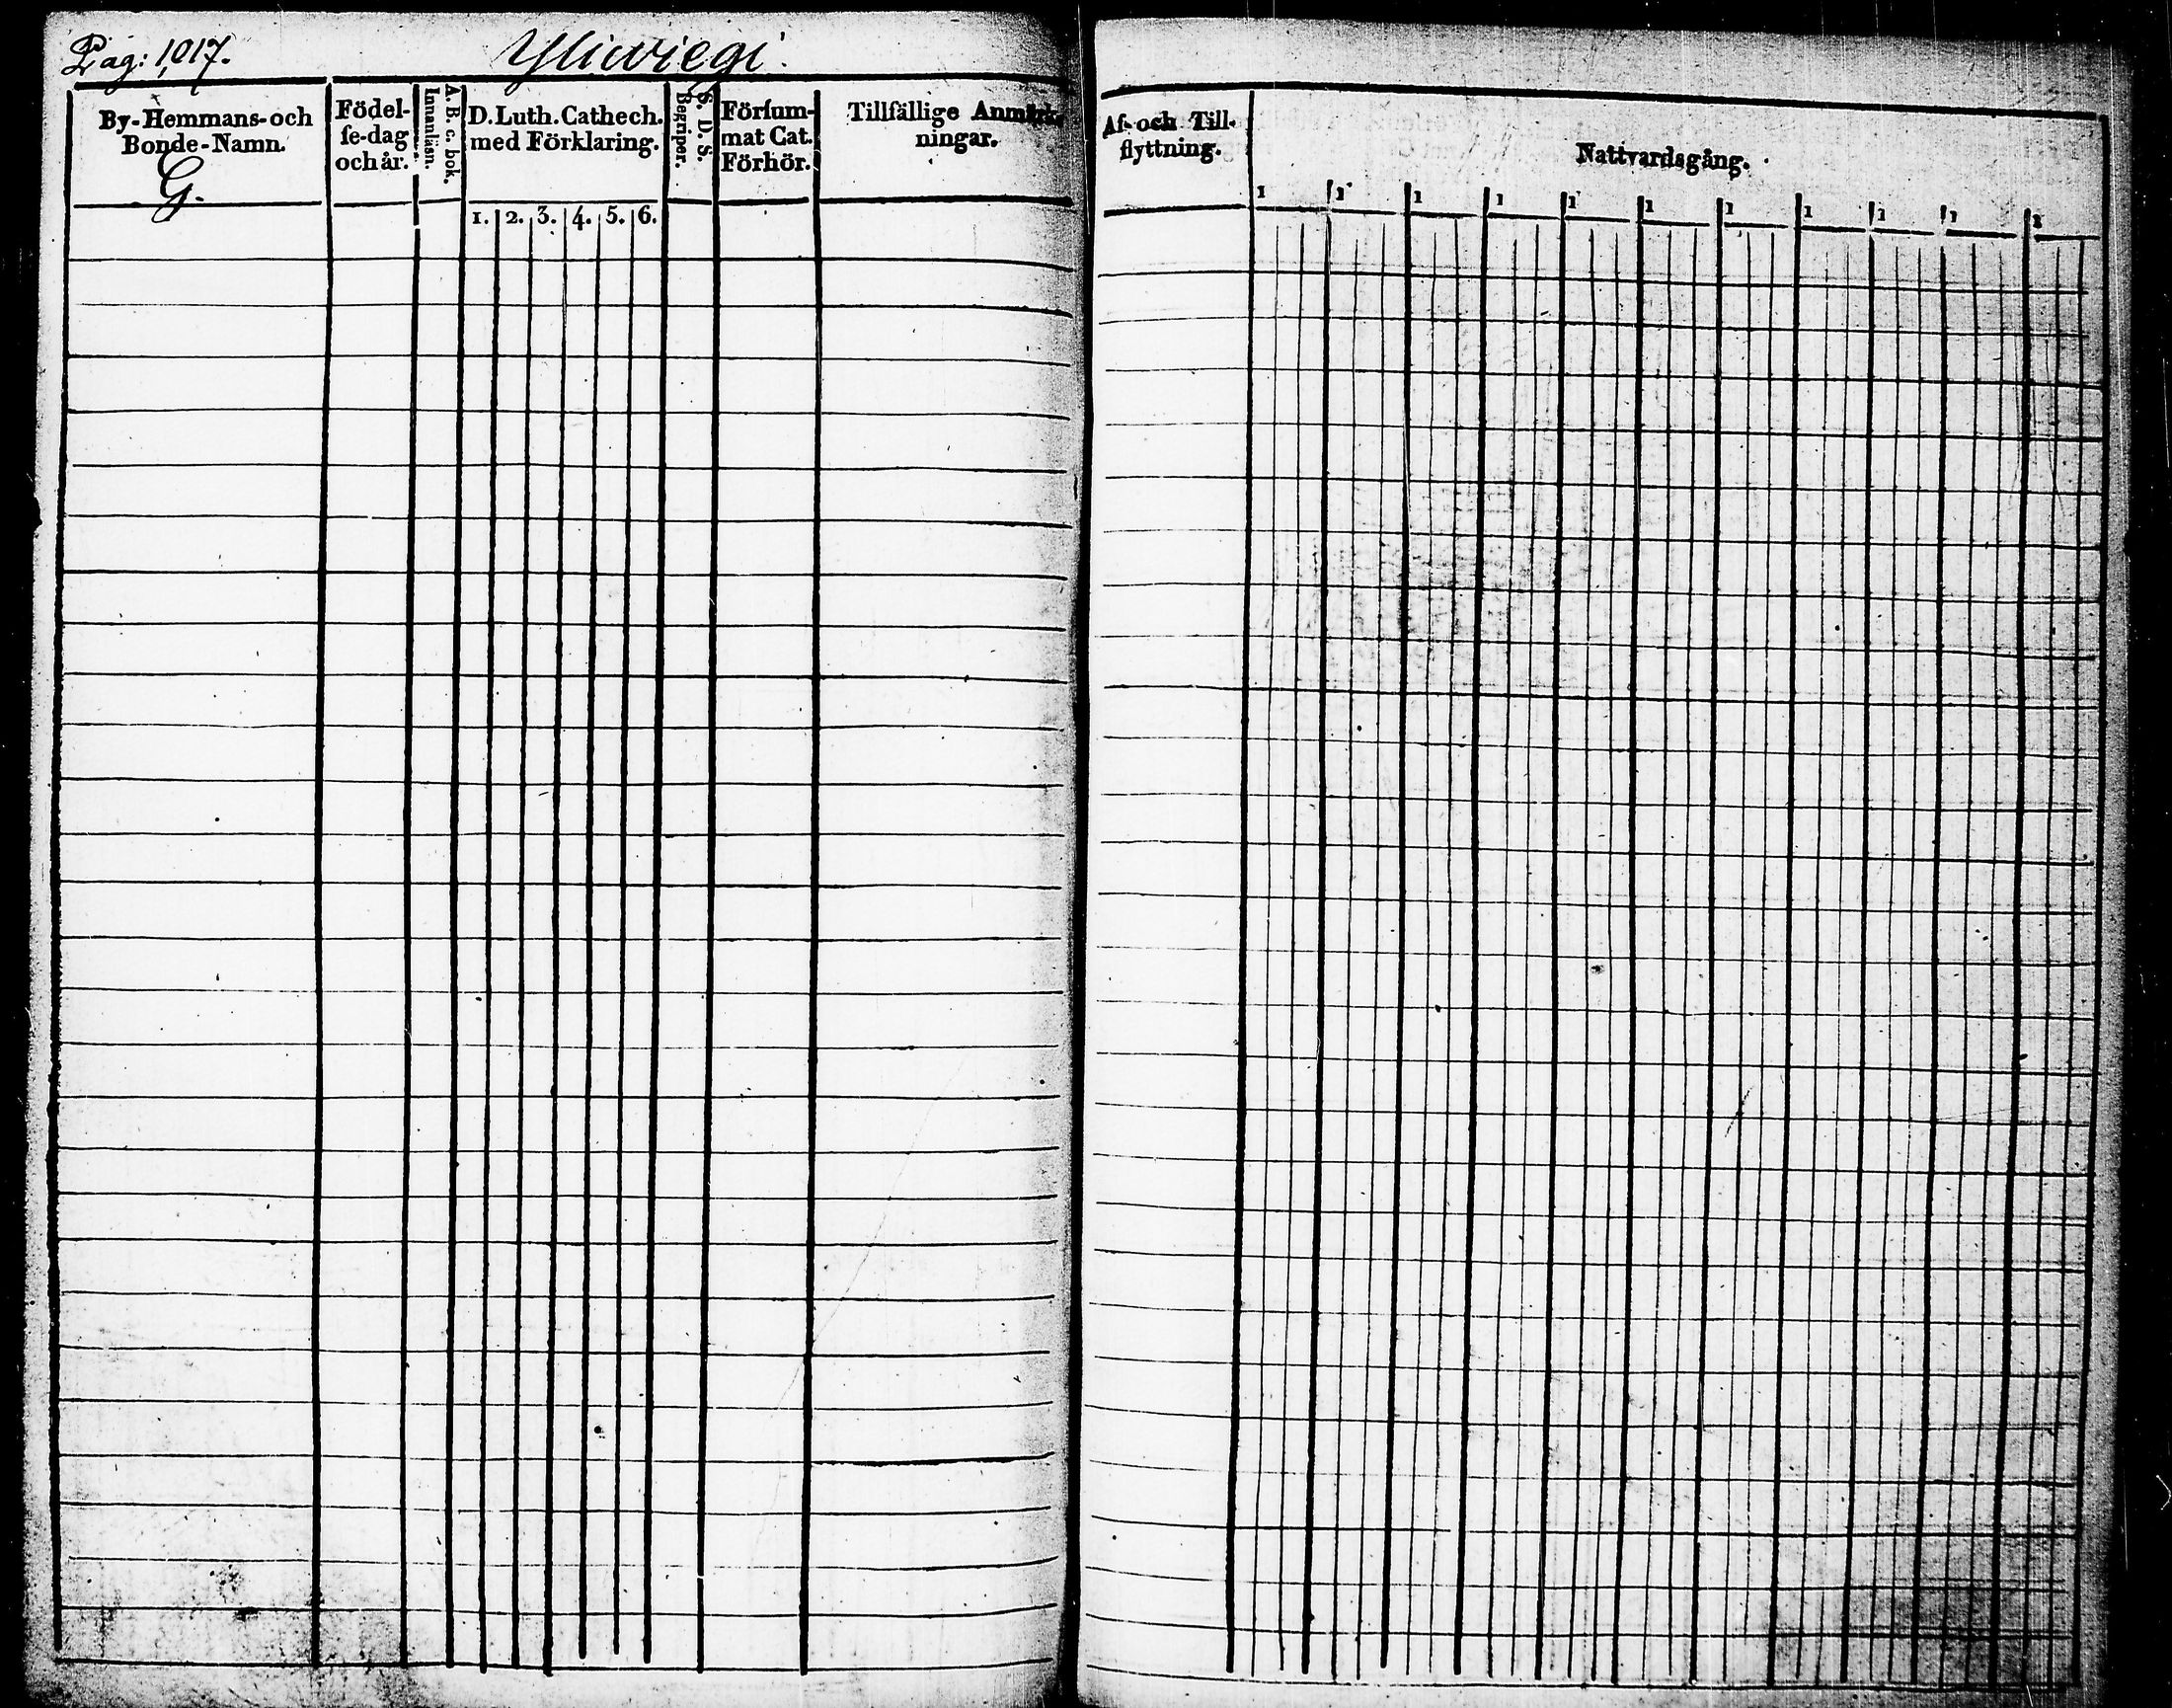 Pag: 1017.
Yliwiegi.
By-Hemmans-och
Bonde-Namn.
G.
Födel-
ſe-dag
och år.
A. B. c. bok.
Innanläsn.
D. Luth. Cathech.
med Förklaring.
1. 2. 3. 4. 5. 6.
S. D. S.
Begriper.
Förſum-
mat Cat.
Förhör.
Tillfällige Anmärk-
ningar.
Af- och Till-
flyttning.
Nattvardsgång.
1 1 1 1 1 1 1 1 1 1 1